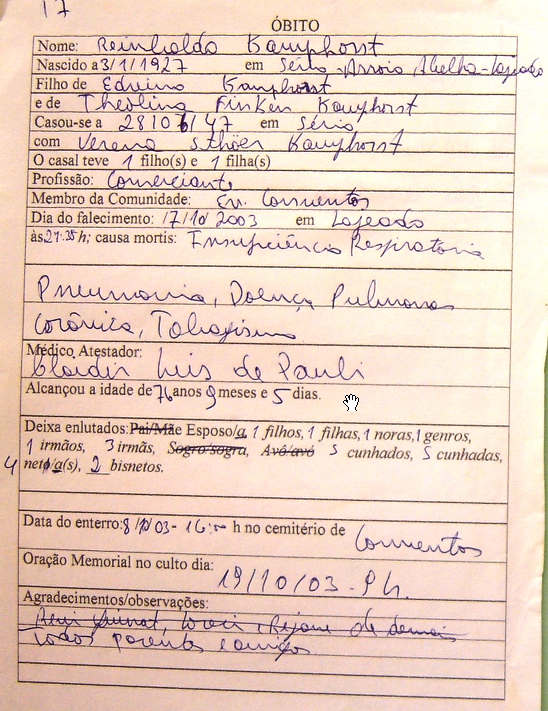 17
ÓBITO
Nome: Reinholdo Kamphorst
Nascido a 3/1/1927 em Sério - Arroio Abelha - Lajeado
Filho de Edvino Kamphorst
e de Theolina Finken Kamphorst
Casou-se a 28/07/47 em Sério
com Verena Kamphorst
O casal teve 1 filho(s) e 1 filha(s)
Profissão: Comerciante
Membro da Comunidade: Ev. Conventos
Dia do falecimento: 17/10/2003 em Lajeado
às 21:35 h; causa mortis: Insuficiência Respiratoria
Pneumonia, Doença Pulmonar
Crônica, Tabagismo
Médico Atestador:
Claidir Luis de Pauli
Alcançou a idade de 76 anos 9 meses e 5 dias.
Deixa enlutados: Pai/Mãe Esposo/a, 1 filhos, 1 filhas, 1 noras, 1 genros,
1 irmãos, 3 irmãs, Sogro/sogra, Avó/avô 5 cunhados, 5 cunhadas,
4 neto/a(s), 2 bisnetos.
Data do enterro: 8/10/03 - 16:00 h no cemitério de Conventos
Oração Memorial no culto dia:
19/10/03 - 9 h.
Agradecimentos/observações:
de demais
todos parentes e amigos